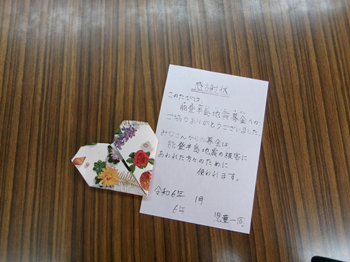 感謝状
このたびは
能登半島地震募金への
ご協力ありがとうございました。
みなさんからの募金は
能登半島地震の被害に
あわれた方々のために
使われます。
令和6年 1月
6年
児童一同